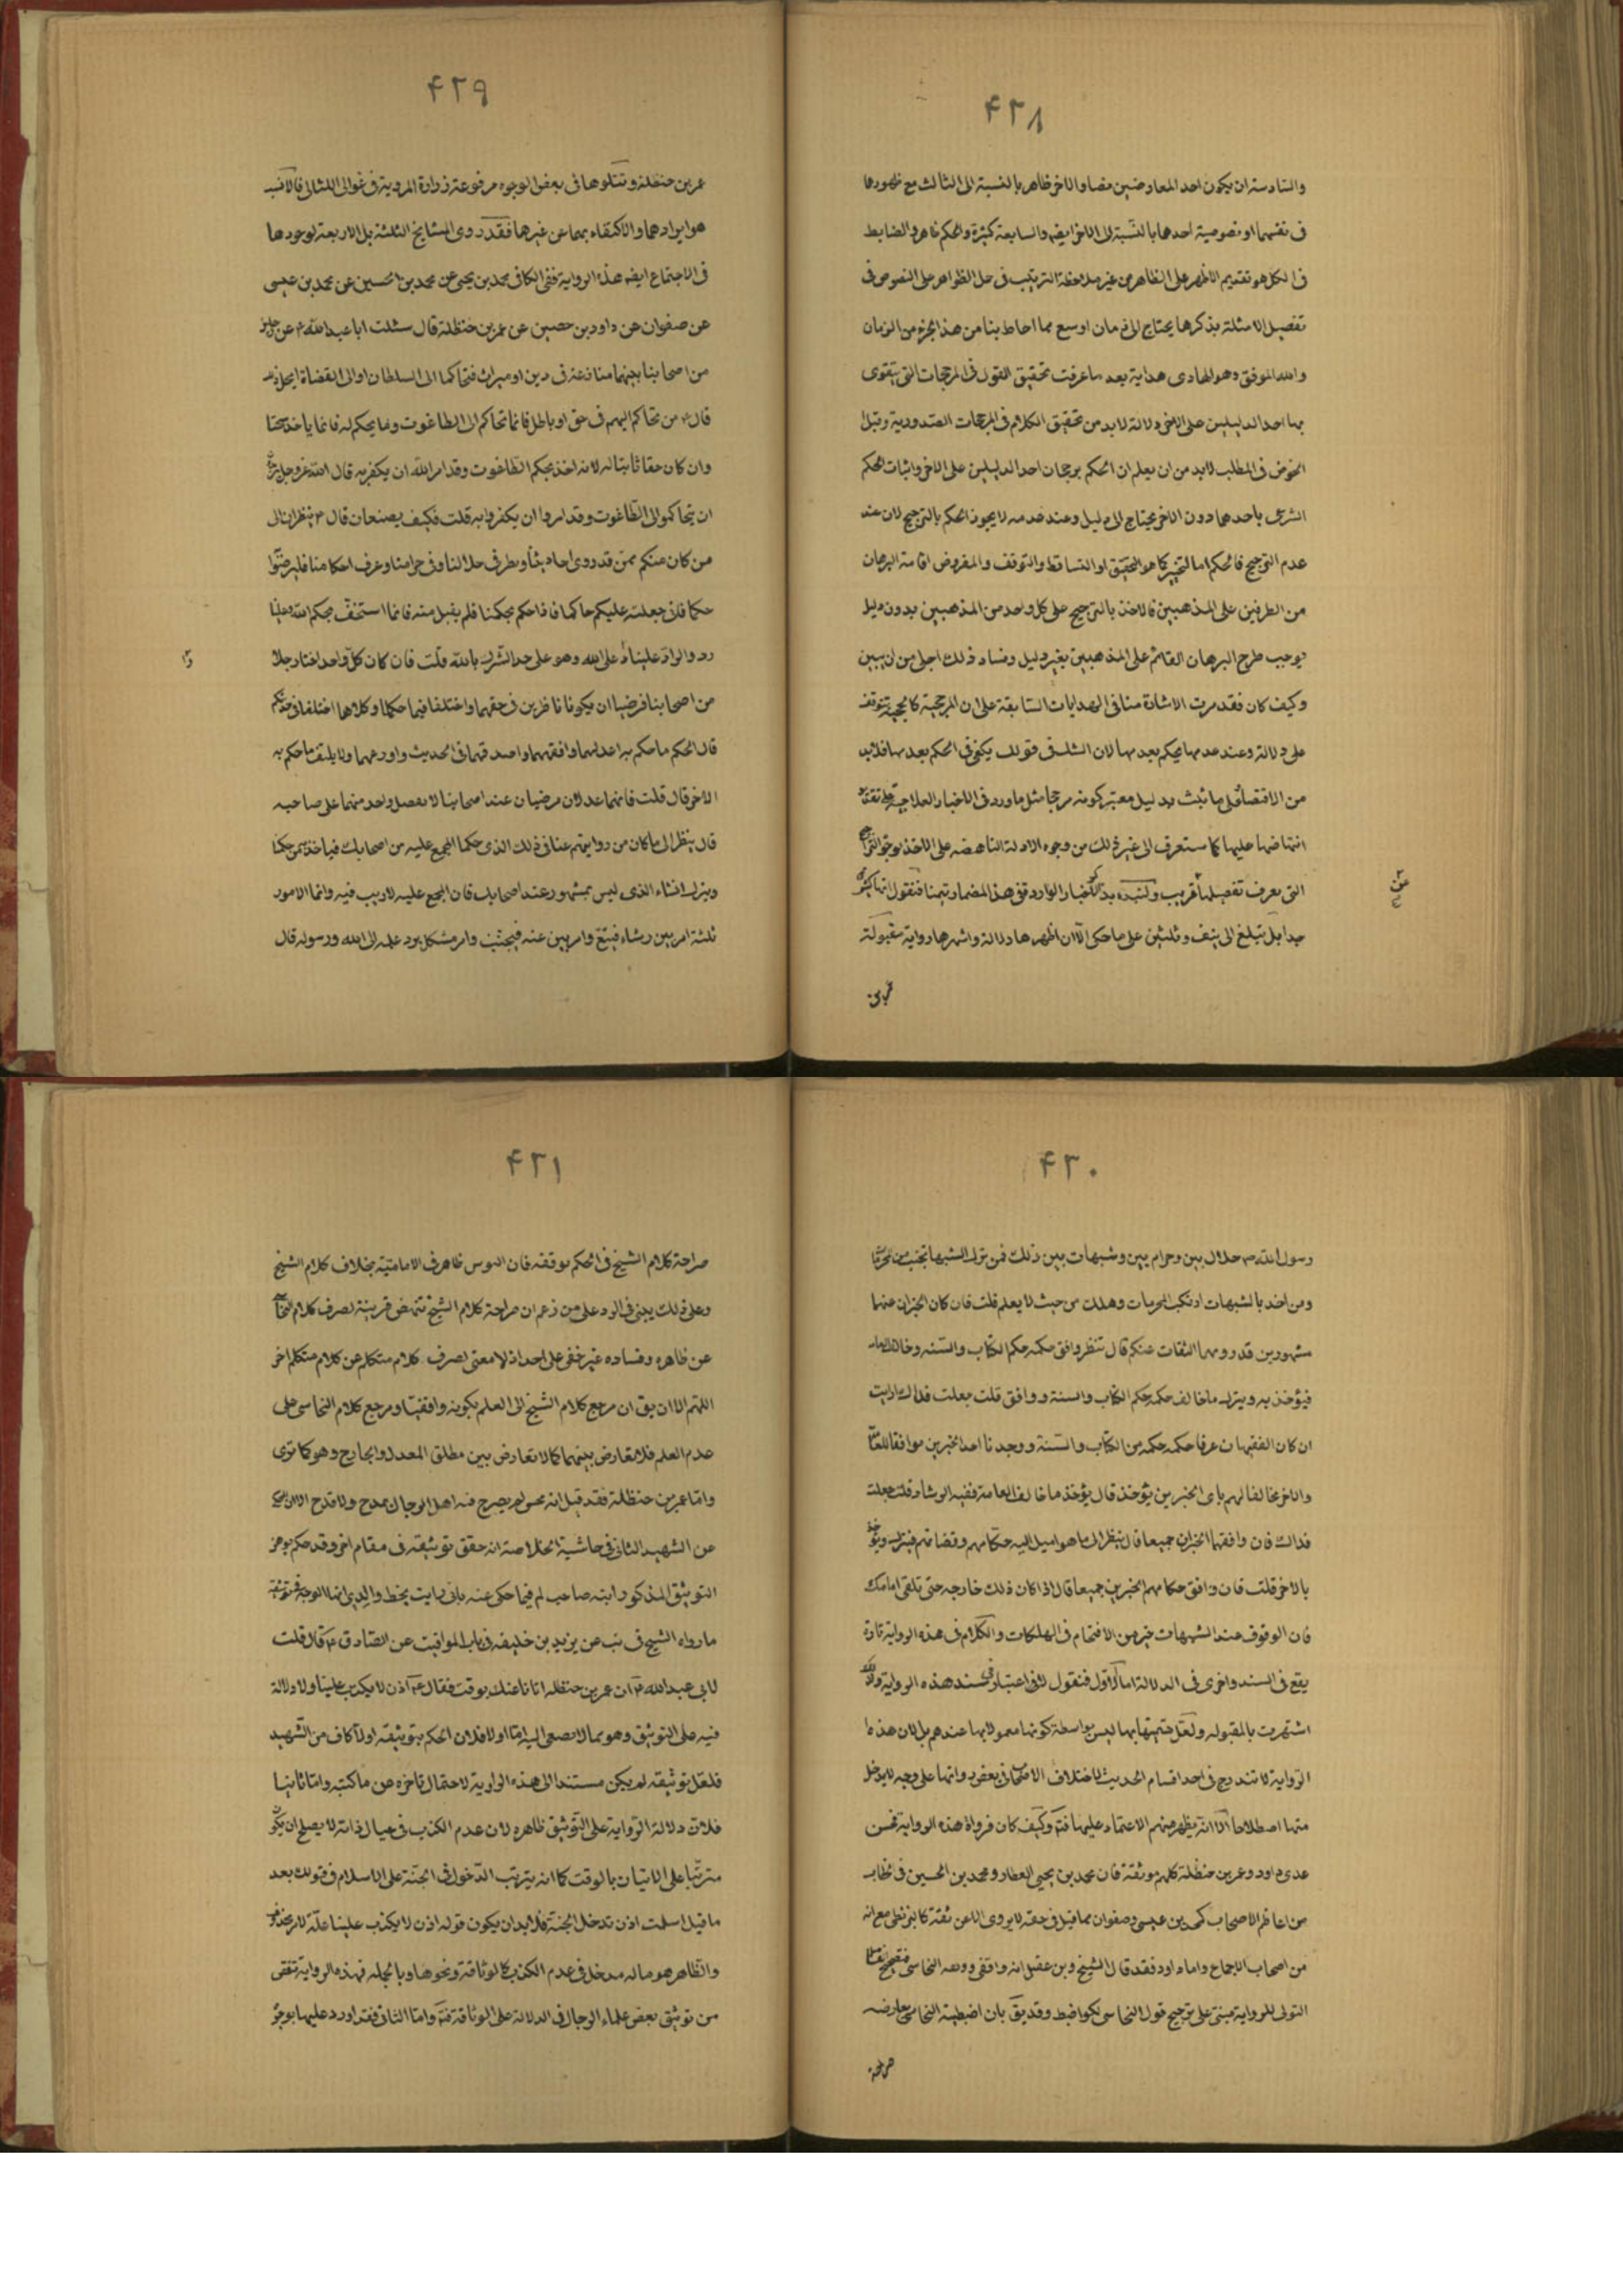 ۴۲۸
والسادسة ان يكون احد المعارضين نصا والاخر ظاهر بالنسبة الى الثالث مع ظهورهما
فى نفسهما او نصوصية احدهما بالنسبة الى الاخر ايضه والسابعة كثيرة والحكم ظاهر والضابط
فى الكل هو تقديم الاظهر على الظاهر من غير ملاحظة الترتيب فى حمل الظواهر على النصوص فى
تفصيل الامثلة بذكرها يحتاج الى زمان اوسع مما احاط بنا من هذا الجزء من الزمان
والله الموفق وهو الهادى هداية بعد ما عرفت تحقيق القول فى المرجحات التى يتقوى
بها احد الدليلين على الاخر دلالة لابد من تحقيق الكلام فى المرجحات الصدورية وقبل
الخوض فى المطلب لابد من ان يعلم ان الحكم برجحان احد الدليلين على الاخر واثبات الحكم
الشرعى باحدهما دون الاخر يحتاج الى دليل وعند عدمه لا يجوز الحكم بالترجيح لان عند
عدم الترجيح فالحكم اما التخيير كما هو التحقيق او التساقط والتوقف والمفروض اقامة البرهان
من الطرفين على المذهبين فالاخذ بالترجيح على كل واحد من المذهبين بدون دليل
يوجب طرح البرهان القائم على المذهبين بغير دليل وفساد ذلك اجلى من ان يبين
وكيف كان فقد مرت الاشارة منا فى الهدايات السابقة على ان المرجحية كالحجية تتوقف
على دلالة وعند عدمها يحكم بعدمها لان الشك فى قولك يكفى فى الحكم بعدمها فلابد
من الاقتصار على ما ثبت بدليل معتبر كونه مرجحا مثل ما ورد فى الاخبار العلاجية
انتهاضها عليها كما ستعرف الى غير ذلك من وجوه الادلة الناهضه على الاخذ بوجوه
التى يعرف تفصيلها قريب ولنبدء بذكر الاخبار الواردة فى هذا المضمار تيمنا فنقول انها كثيرة
جدا بل تبلغ الى نيف وثلثين على ما حكى الا ان اظهرها دلالة واشهرها رواية مقبولة
عمر بن
۴۲۹
عمر بن حنظلة وتتلوها فى بعض الوجوه مرفوعة زرارة المروية فى غوالى اللئالى فالانسب
هو ايرادهما والاكتفاء بهما عن غيرها فقد روى المشايخ الثلثة بل الاربعة لوجودها
فى الاجتماع ايضه هذه الرواية ففى الكافى محمد بن يحيى عن محمد بن الحسين عن محمد بن عيسى
عن صفوان عن داود بن حصين عن عمر بن حنظلة قال سئلت ابا عبد الله ع عن رجلين
من اصحابنا بينهما منازعة فى دين او ميراث فتحاكما الى السلطان او الى القضاة ايحل ذلك
قال ع من تحاكم اليهم فى حق او باطل فانما تحاكم الى الطاغوت وما يحكم له فانما ياخذ سحتا
وان كان حقا ثابتا له لانه اخذ بحكم الطاغوت وقد امر الله ان يكفر به قال الله عز وجل يريدون
ان يتحاكموا الى الطاغوت وقد امروا ان يكفروا به قلت فكيف يصنعان قال ع ينظران الى
من كان منكم ممن قد روى احاديثنا ونظر فى حلالنا وفى حرامنا وعرف احكامنا فليرضوا
حكما فانى جعلته عليكم حاكما فاذا حكم بحكمنا فلم يقبل منه فانما استخف بحكم الله وعلينا
رد والراد علينا راد على الله وهو على حد الشرك بالله قلت فان كان كل واحد اختار رجلا
من اصحابنا فرضيا ان يكونا ناظرين فى حقهما واختلفا فيما حكما وكلاهما اختلفا فى حديثكم
قال الحكم ما حكم به اعدلهما وافقههما واصدقهما فى الحديث واورعهما ولا يلتفت ما حكم به
الاخر قال قلت فانهما عدلان مرضيان عند اصحابنا لا يفضل واحد منهما على صاحبه
قال ينظر الى ما كان من روايتهم عنا فى ذلك الذى حكما المجمع عليه من اصحابك فياخذ به من حكمنا
ويترك الشاذ الذى ليس بمشهور عند اصحابك فان المجمع عليه لا ريب فيه وانما الامور
ثلثة امر بين رشده فيتبع وامر بين غيه فيجتنب وامر مشكل يرد علمه الى الله ورسوله قال
۴۳۰
رسول الله ص حلال بين وحرام بين وشبهات بين ذلك فمن ترك الشبهات نجى من المحرمات
ومن اخذ بالشبهات ارتكب المحرمات وهلك من حيث لا يعلم قلت فان كان الخبران عنهما
مشهورين قد رويهما الثقات عنكم قال تنظر وافق حكمه حكم الكتاب والسنة وخالف العامه
فيؤخذ به ويترك ما خالف حكمه حكم الكتاب والسنة ووافق قلت جعلت فداك ارايت
ان كان الفقيهان عرفا حكمه حكمه من الكتاب والسنة ووجدنا احد الخبرين موافقا للعامة
والاخر مخالفا لهم باى الخبرين يؤخذ قال يؤخذ ما خالف العامة ففيه الرشاد قلت جعلت
فداك فان وافقها الخبران جميعا قال ينظر الى ما هو اميل اليه حكامهم وقضاتهم فيترك ويؤخذ
بالاخر قلت فان وافق حكامهم الخبرين جميعا قال اذا كان ذلك فارجه حتى تلقى امامك
فان الوقوف عند الشبهات خير من الاقتحام فى الهلكات والكلام فى هذه الرواية تارة
يقع فى السند واخرى فى الدلالة اما الاول فنقول لا شك فى اعتبار سند هذه الرواية ولذا
اشتهرت بالمقبوله ولعل حجيتها بها ليس بواسطة كونها معمولا بها عندهم بل لان هذه
الرواية لا تندرج فى احد اقسام الحديث لاختلاف الاصحاب فى بعض رواتها على وجه لا يدخل
منها اصطلاحا الا انه يظهر منهم الاعتماد عليها فتم وكيف كان فرواة هذه الرواية فمن
عدى داود وعمر بن حنظلة كلهم موثقة فان محمد بن يحيى العطار ومحمد بن الحسين
من اعاظم الاصحاب كمحمد بن عيسى وصفوان مما قيل فى حقه لا يروى الا عن ثقة كالبزنطى مع انه
من اصحاب الاجماع واما داود فقد قال الشيخ وبن عقدة انه واقفى ووثقه النجاشى
التولى للرواية مبنى على ترجيح قول النجاشى لكونه اضبط وقد يق بان اضبطية النجاشى يعارضه
صراحة
۴۳۱
صراحة كلام الشيخ فى الحكم بوقفه فان النوس ظاهر فى الامامية بخلاف كلام الشيخ
وعلى ذلك يبنى فى الرد على من زعم ان صراحة كلام الشيخ تنهض قرينة لصرف كلام النجاشى
عن ظاهره وفساده غير خفى على احد اذ لا معنى لصرف كلام متكلم عن كلام متكلم اخر
اللهم الا ان يق ان مرجع كلام الشيخ الى العلم بكونه واقفيا ومرجع كلام النجاشى على
عدم العلم فلا تعارض بينهما كما لا تعارض بين مطلق المعدل والجارح وهو كما ترى
واما عمر بن حنظلة فقد قيل انه مح لم يصرح فيه اهل الرجال بمدح ولا قدح الا ان
عن الشهيد الثانى فى حاشية الخلاصة انه حقق توثيقه فى مقام اخر وقد حكم بوهن
التوثيق المذكور ابنه صاحب لم فيما حكى عنه بانى رايت بخط والدى انما الوجه فى توثيقه
ما رواه الشيخ فى يب عن يزيد بن خليفه فى باب المواقيت عن الصادق ع قال قلت
لابى عبد الله ع ان عمر بن حنظله اتانا عنك بوقت فقال ع اذن لا يكذب علينا ولا دلالة
فيه على التوثيق وهو مما لا يصغى اليه اما اولا فلان الحكم بتوثيقه اولا كاف من الشهيد
فلعل توثيقه لم يكن مستندا الى هذه الرواية لاحتمال تاخره عن ما كتبه واما ثانيا
فلان دلالة الرواية على التوثيق ظاهره لان عدم الكذب فى حيال ذاته لا يصلح ان يكون
مترتبا على الاتيان بالوقت كما انه يترتب الدخول فى الجنة على الاسلام فى قولك بعد
ما قيل اسلمت اذن تدخل الجنة فلابد ان يكون قوله اذن لا يكذب علينا علة لامر محذوف
والظاهر هو ما له مدخل فى عدم الكذب كالوثاقة ونحوها وبالجمله فهذه الرواية تغنى
من توثيق بعض علماء الرجال فى الدلالة على الوثاقة فتم واما الثانى فقد اورد عليها بوجوه